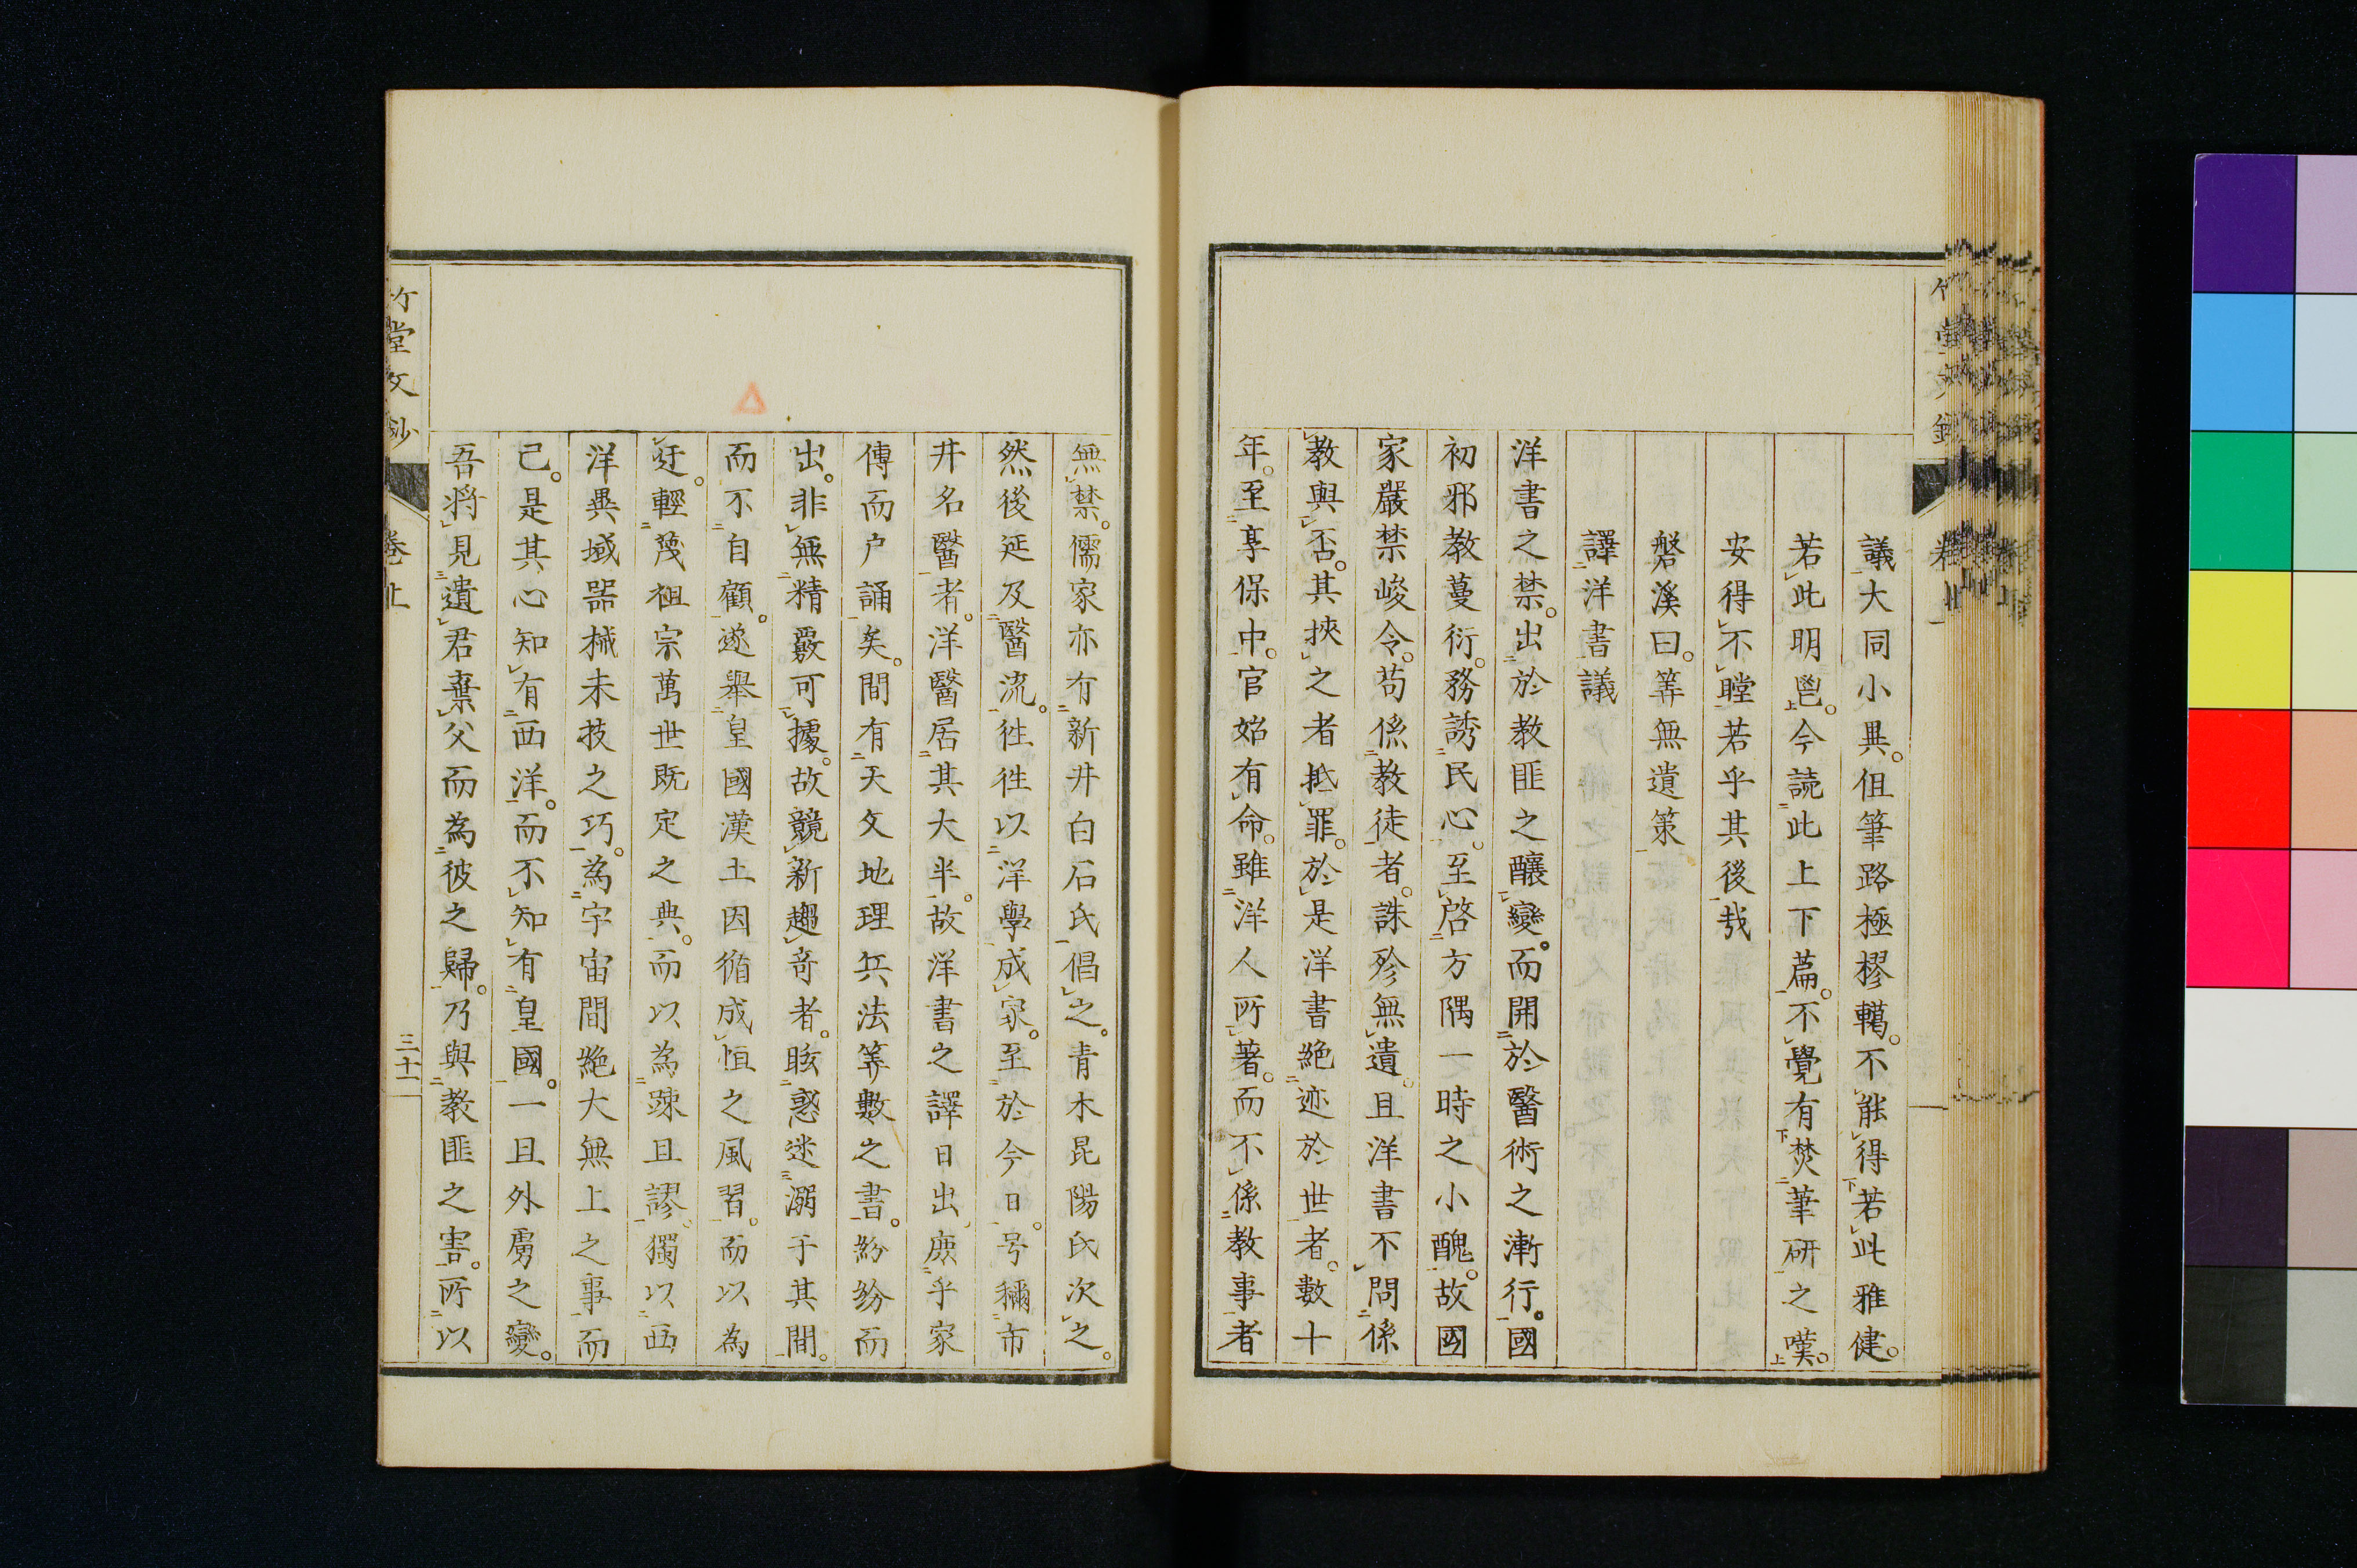 議大同小異。但筆路極樛轕。不能得若此雅健。
若此明鬯。今読此上下篇。不覺有焚筆研之嘆。
安得不瞠若乎其後哉
磐溪曰。筭無遺策
譯洋書議
洋書之禁。出於教匪之釀變。而開於醫術之漸行。國
初邪教蔓衍。務誘民心。至啓方隅一時之小醜。故國
家嚴禁峻令。苟係教徒者。誅殄無遺。且洋書不問係
教與否。其挾之者抵罪。於是洋書絶迹於世者。數十
年。至享保中。官始有命。雖洋人所著。而不係教事者
無禁。儒家亦有新井白石氏倡之。青木昆陽氏次之。
然後延及醫流。徃徃以洋學成家。至於今日。号稱市
井名醫者。洋醫居其大半。故洋書之譯日出。庶乎家
傳而户誦矣。間有天文地理兵法筭數之書。紛紛而
出。非無精覈可據。故競新趨奇者。眩惑迷溺于其間。
而不自顧。遂舉皇國漢土因循成恒之風習。而以為
迂。輕蔑祖宗萬世既定之典。而以為疎且謬。獨以西
洋異域器械末技之巧。為宇宙間絶大無上之事。而
己。是其心知有西洋。而不知有皇國。一旦外虜之變。
吾将見遺君棄父而為彼之歸。乃與教匪之害。所以
竹堂文鈔
卷上
三十一